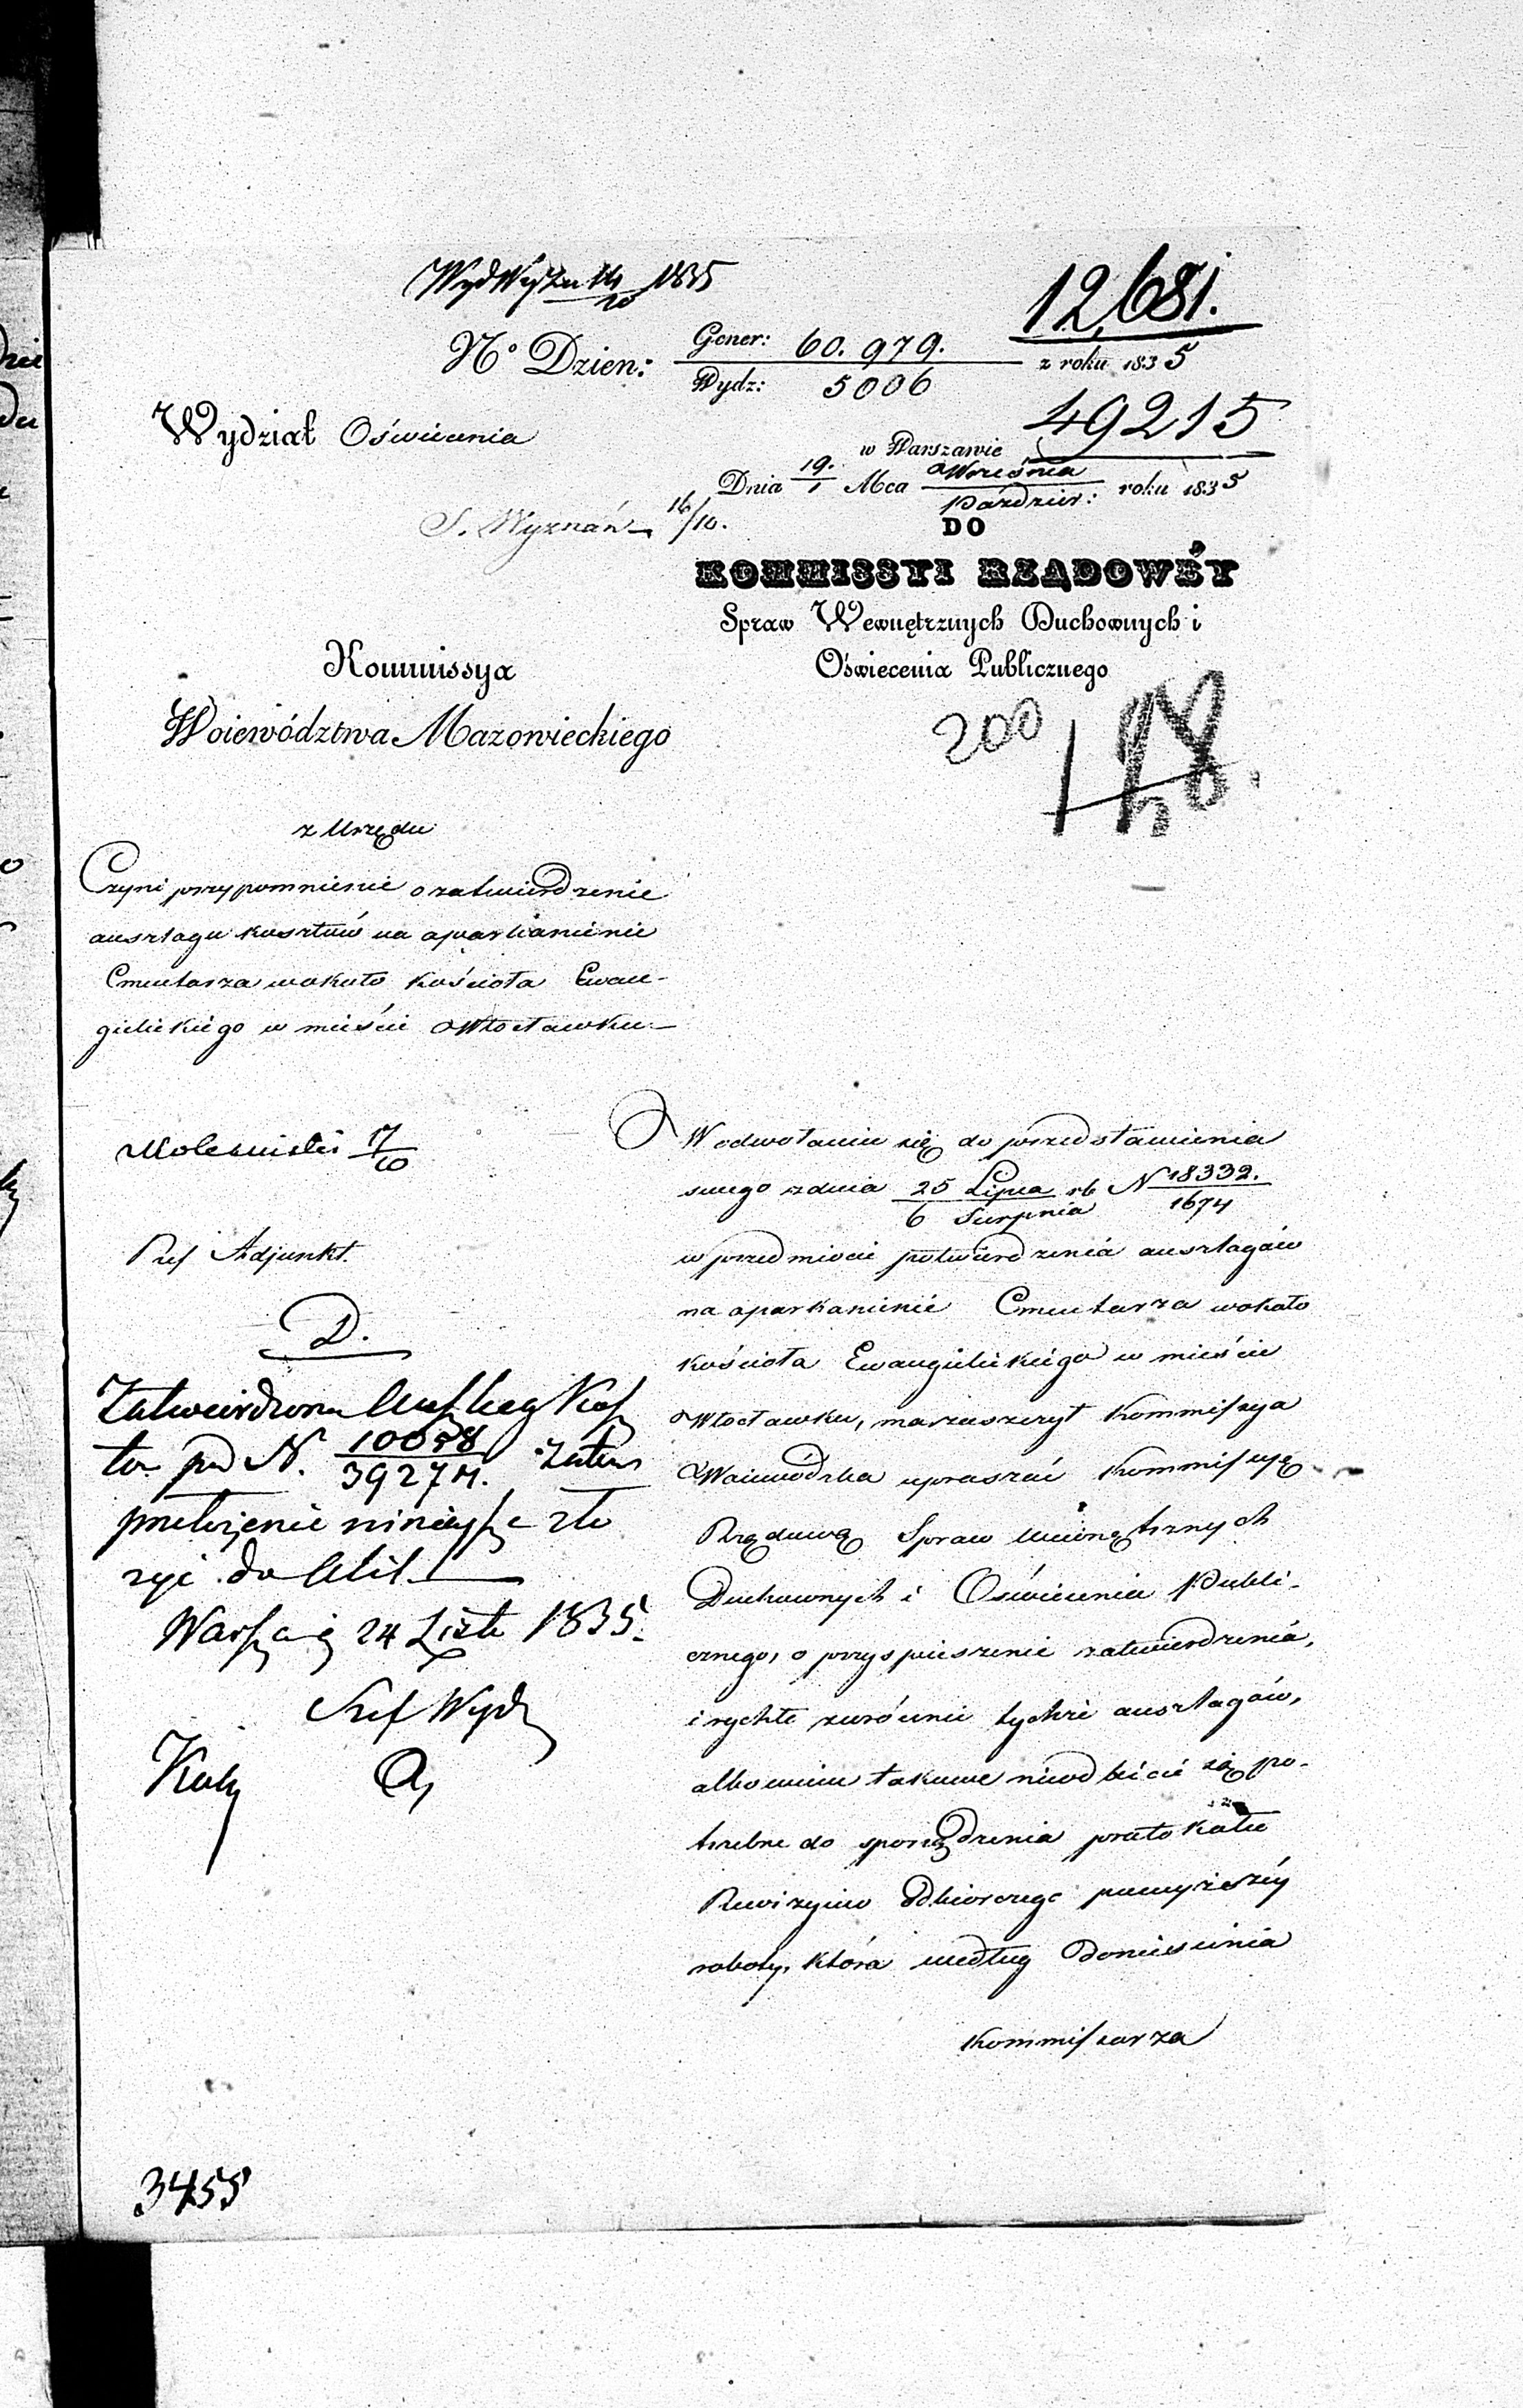 Wyd Wyzn 14/10 1835
12,681.
z roku 1835
49215
N° Dzien: Gener: 60.979.
Wydz: 5006
Wydział Oświecenia
w Warszawie
Dnia 19./1 Mca Września/Paździer: roku 1835
S. Wyznań 16/10.
DO
KOMMISSYI RZĄDOWÉY
Spraw Wewnętrznych Duchownych i
Oświecenia Publicznego
Kommissya
Woiewództwa Mazowieckiego
200
z Urzędu
Czyni przypomnienie o zatwierdzenie
auszlagu kosztów na oparkanienie
Cmentarza wokoło kościoła Ewan-
gielickiego w mieście Włocławku.
17/10
Ref Adjunkt.
D.
Zatwierdzono Auszlag Kosz
ta pod N. 10058/39274. zatem
przełożenie ninieysze zło
zyć do Akt.
Warszawa 24 Liste 1835.
Szef Wydz
W odwołaniu się do przedstawienia
swego z dnia 25 Lipca/6 Sierpnia rb N 18332./1674
w przedmiocie potwierdzenia auszlagów
na oparkanienie Cmentarza wokoło
kościoła Ewangielickiego w mieście
Włocławku, ma zaszczyt Kommissya
Woiewódzka upraszać Kommissyę
Rządową Spraw Wewnętrznych
Duchownych i Oświecenia Publi-
cznego, o przyspieszenie zatwierdzenia,
i rychłe zwrócenie tychże auszlagów,
albowiem takowe nieodbicie są po-
trzebne do sporządzenia protokołu
Rewizyino Odbiorczego powyższéy
roboty, która według doniesienia
Kommissarza
3455